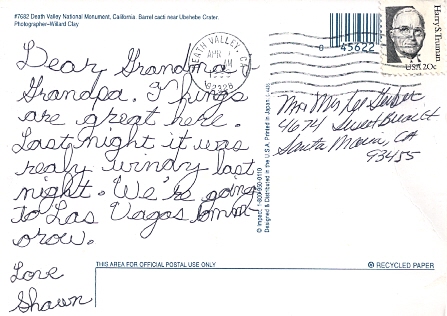 #7682 Death Valley National Monument, California. Barrel cacti near Ubehebe Crater.
Photographer–Willard Clay
Dear Grandma &
Grandpa. Things
are great here.
Last night it was
realy windy last
night. We're going
to Las Vagos tomm-
orow.
Love
Shawn
DEATH VALLEY, CA
APR
AM
92328
0 45622
Harry S. Truman
USA 20c
4674 Sweet
Santa Maria, CA
93455
© Impact 1-800-950-0110
Designed & Distributed in the U.S.A. Printed in Japan
THIS AREA FOR OFFICIAL POSTAL USE ONLY
RECYCLED PAPER